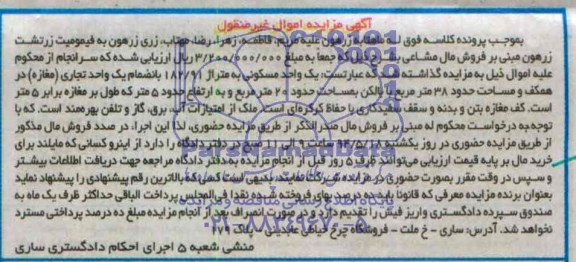 آگهی مزایده اموال غیرمنقول
بموجب پرونده کلاسه فوق له ماهتاب زرهون علیه مریم، فاطمه، زهرا، رضا، مهتاب، زری زرهون به قیمومیت زرتشت
زرهون مبنی بر فروش مال مشاعی بشرح ذیل که جمعاً به مبلغ ریال ارزیابی شده که سرانجام از محکوم
علیه اموال ذیل به مزایده گذاشته شد که عبارتست: یک واحد مسکونی به متراژ ۱۸۲/۹۱ بانضمام یک واحد تجاری (مغازه) در
همکف و مساحت حدود ۳۸ متر مربع با بالکن بمساحت حدود ۲۰ متر مربع و به ارتفاع حدود ۵ متر که طول بر مغازه برابر ۵ متر
است. کف مغازه بتن و بدنه و سقف سفیدکاری با حفاظ کرکره‌ای است. ملک از امتیازات آب، برق، گاز و تلفن بهره‌مند است. که با
توجه به درخواست محکوم له مبنی بر فروش مال مندر الذکر از طریق مزایده حضوری، لذا این اجرا، در صدد فروش مال مذکور
از طریق مزایده حضوری در روز یکشنبه ساعت ۹ الی صبح در دفتر دادگاه را دارد از اینرو کسانی که مایلند برای
خرید مال بر پایه قیمت ارزیابی می‌توانند ظرف ۵ روز قبل از انجام مزایده به دفتر دادگاه مراجعه جهت دریافت اطلاعات بیشتر
و سپس در وقت مقرر بصورت حضوری در مزایده شرکت نمایند. بدیهی است کسی که بالاترین رقم پیشنهادی را پیشنهاد نماید
بعنوان برنده مزایده معرفی که قانوناً باید ده درصد بهای فروخته شده نقداً فی‌المجلس پرداخت الباقی حداکثر ظرف یک ماه به
صندوق سپرده دادگستری واریز فیش را تقدیم دارد و در صورت انصراف بعد از انجام مزایده مبلغ ده درصد پرداختی مسترد
نخواهد شد. آدرس: ساری - خ ملت - فروشگاه چرخ خیاطی عابدینی - پلاک ۴۷۹
منشی شعبه ۵ اجرای احکام دادگستری ساری
پایگاه اطلاع رسانی مناقصه و مزایده